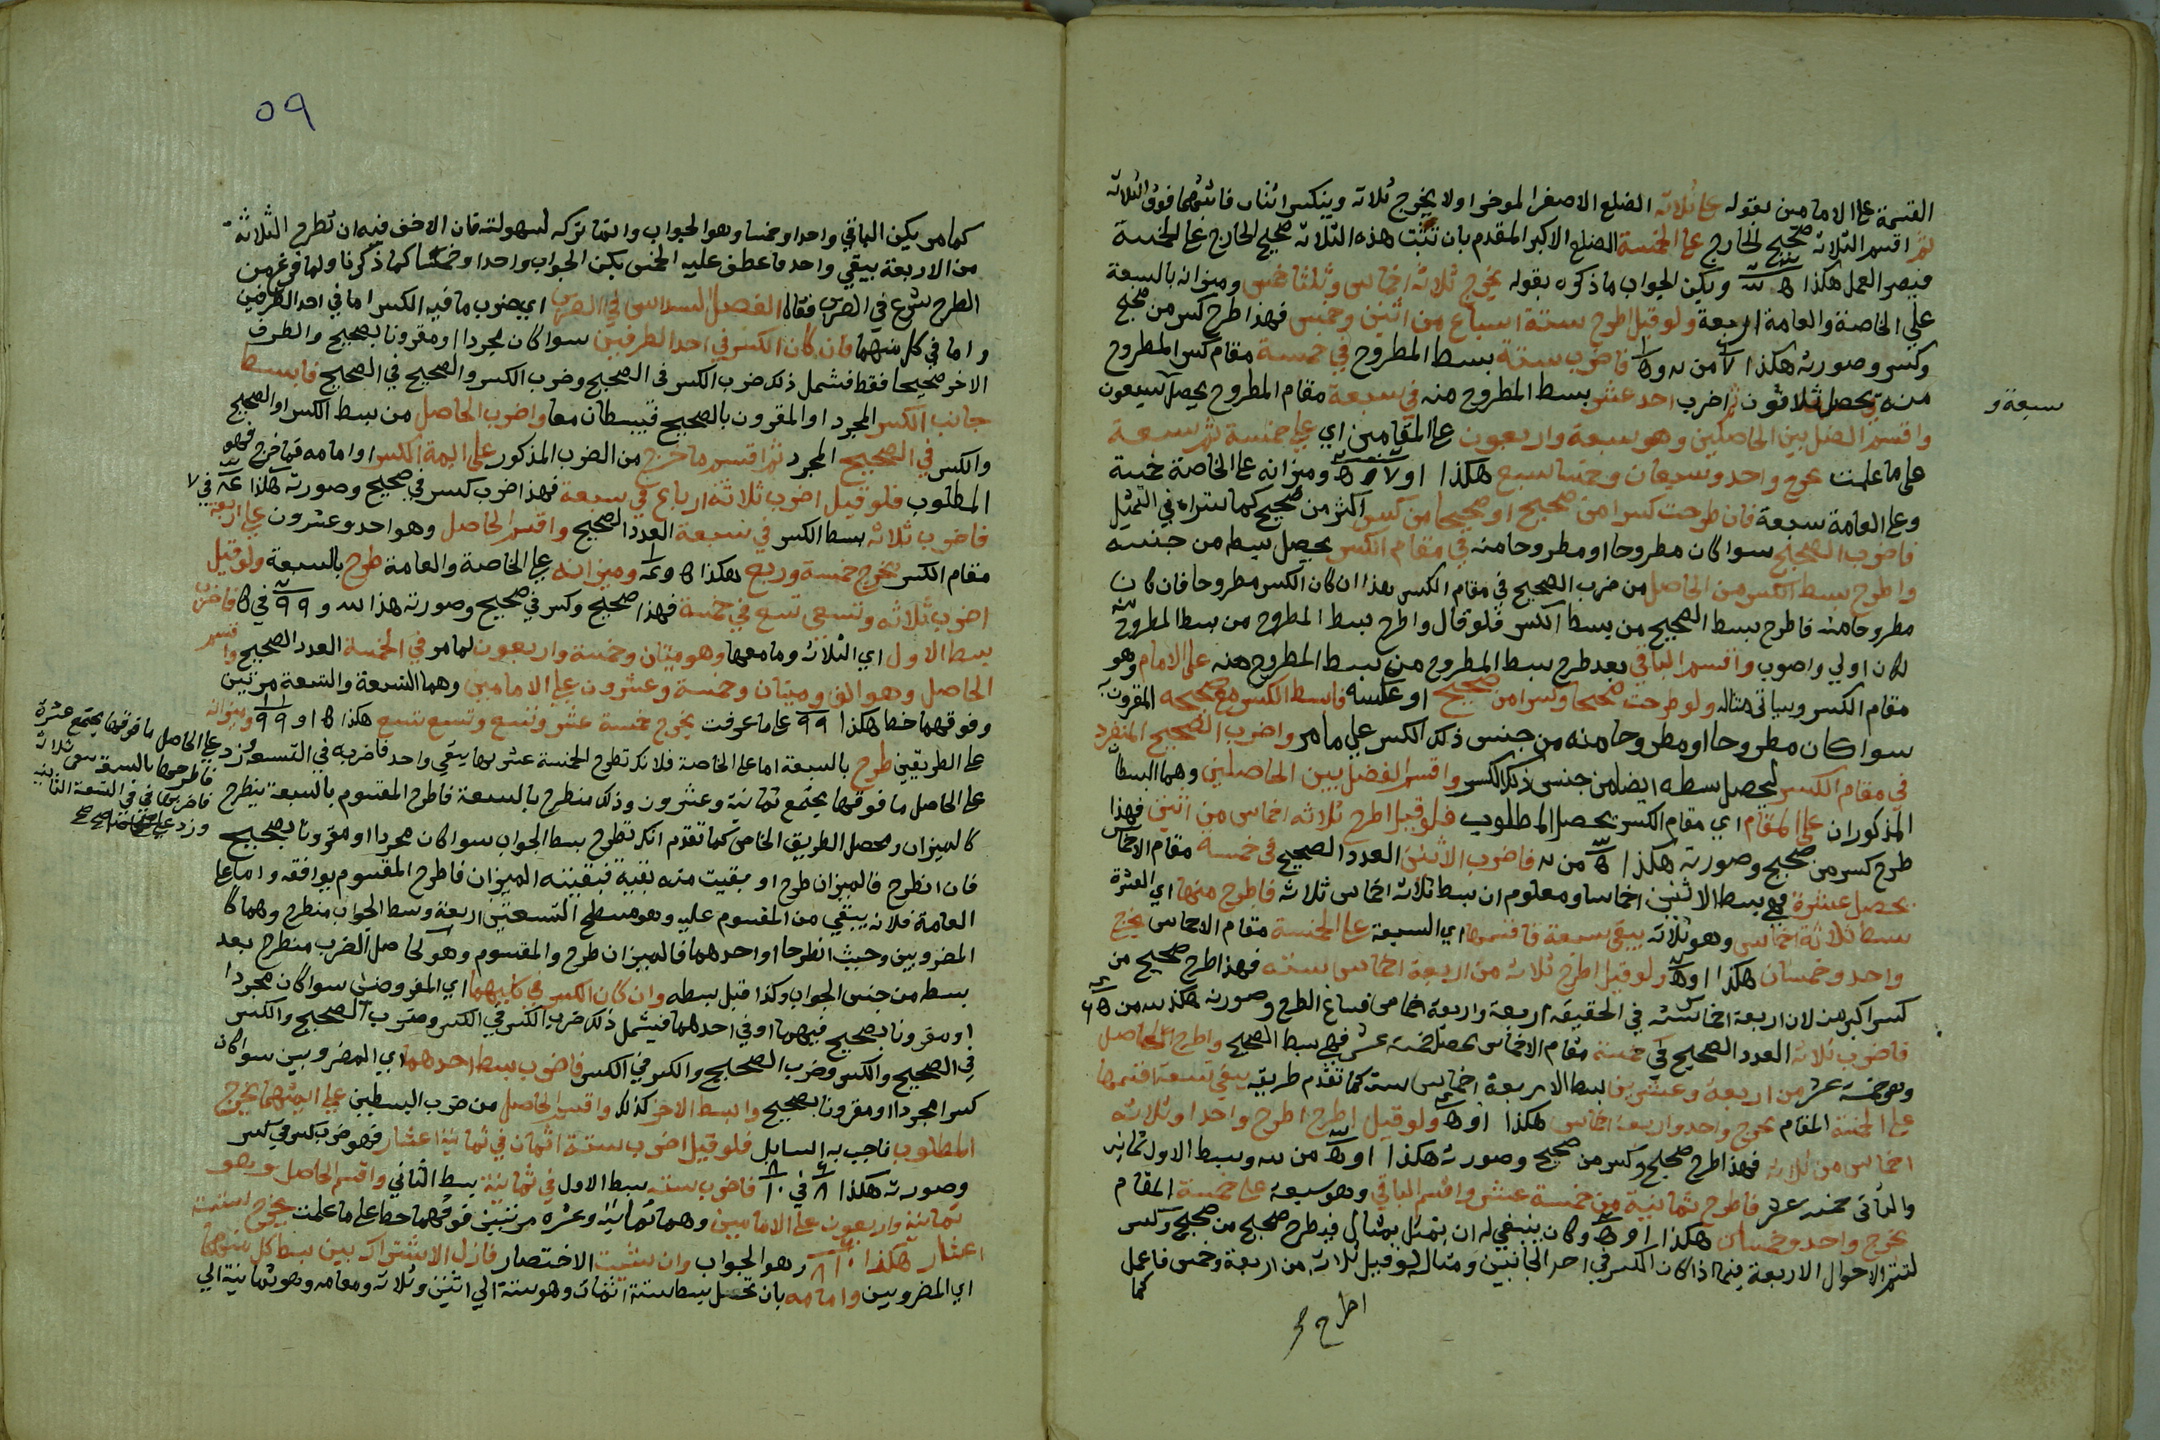 القسمة على الامامين بقوله على ثلاثة الضلع الاصغر الموخر اولا يخرج ثلاثة وينكسر اثنان فاثبتهما فوق الثلاثة
ثم اقسم الثلاثة صحيح الخارج على الخمسة الضلع الاكبر المقدم بان تثبت هذه الثلاثة صحيح الخارج على الخمسة
فيصير العمل هكذا ويكن الجواب ما ذكره بقوله يخرج ثلاثة اخماس وثلثا خمس وميزانه بالسبعة
على الخاصة والعامة اربعة ولو قيل اطرح ستة اسباع من اثنين وخمس فهذا طرح كسر من صحيح
وكسر وصورته هكذا فاضرب ستة بسط المطروح في خمسة مقام كسر المطروح
منه يحصل ثلاثون ثم اضرب احد عشر بسط المطروح منه في سبعة مقام المطروح يحصل سبعون
سبعة و
واقسم الفضل بين الحاصلين وهو سبعة واربعون على المقامين اي على خمسة ثم سبعة
على ما علمت يخرج واحد وسبعان وخمسا سبع هكذا وميزانه على الخاصة خمسة
وعلى العامة سبعة فان طرحت كسرا من صحيح او صحيحا من كسر اكثر من صحيح كما ستراه في التمثيل
فاضرب الصحيح سوا كان مطروحا او مطروحا منه في مقام الكسر يحصل بسطه من جنسه
واطرح بسط الكسر من الحاصل من ضرب الصحيح في مقام الكسر هذا ان كان الكسر مطروحا فان كان
مطروحا منه فاطرح بسط الصحيح من بسط الكسر فلو قال واطرح بسط المطروح من بسط المطروح منه
لكان اولي واصوب واقسم الباقي بعد طرح بسط المطروح من بسط المطروح منه على الامام وهو
مقام الكسر وسياتى مثاله ولو طرحت صحيحا وكسرا من صحيح او عكسه فابسط الكسر مع صحيحه المقرون به
سوا كان مطروحا او مطروحا منه من جنس ذلك الكسر على ما مر واضرب الصحيح المنفرد
في مقام الكسر ليحصل بسطه ايضا من جنس ذلك الكسر واقسم الفضل بين الحاصلين وهما البسطان
المذكوران على المقام اي مقام الكسر يحصل المطلوب فلو قيل اطرح ثلاثه اخماس من اثنين فهذا
طرح كسر من صحيح وصورته هكذا فاضرب الاثنين العدد الصحيح في خمسة مقام الاخماس
يحصل عشرة فهي بسط الاثنين اخماسا ومعلوم ان بسط ثلاثة اخماس ثلاثة فاطرح منها اي العشرة
بسط ثلاثة اخماس وهو ثلاثة يبقى سبعة فاقسمها اي السبعة على الخمسة مقام الاخماس يخرج
واحد وخمسان هكذا ولو قيل اطرح ثلاثة من اربعة اخماس ستة فهذا طرح صحيح من
كسر اكبر منه لان اربعة اخماس ستة في الحقيقة اربعة واربعة اخماس فساغ الطرح وصورته هكذا
فاضرب ثلاثة العدد الصحيح في خمسة مقام الاخماس يحصل خمسة عشر فهي بسط الصحيح واطرح الحاصل
وهو خمسة عشر من اربعة وعشرين بسط الاربعة اخماس ستة كما تقدم طريقه يبقى تسعة اقسمها
على الخمسة المقام يخرج واحد واربعة اخماس هكذا ولو قيل اطرح اطرح واحدا وثلاثة
اخماس من ثلاثة فهذا طرح صحيح وكسر من صحيح وصورته هكذا وبسط الاول ثمانية
والثاني خمسة عشر فاطرح ثمانية من خمسة عشر واقسم الباقي وهو سبعة على خمسة المقام
يخرج واحد وخمسان هكذا وكان ينبغي له ان يمثل بمثال فيه طرح صحيح من صحيح وكسر
لتتم الاحوال الاربعة فيما اذا كان الكسر في احد الجانبين ومثاله لو قيل ثلاثة من اربعة وخمس فاعمل
كما
اطرح صح
٥٩
كما مر يكن الباقي واحدا وخمسا وهو الجواب وانما تركه لسهولته فان الاخف فيه ان تطرح الثلاثة
من الاربعة يبقي واحد فاعطف عليه الخمس يكن الجواب واحدا وخمسا كما ذكرنا ولما فرغ من
الطرح شرع في الضرب فقال الفصل السادس في الضرب اي ضرب ما فيه الكسر اما في احد الطرفين
واما في كل منهما فان كان الكسر في احد الطرفين سوا كان مجردا او مقرونا بصحيح والطرف
الاخر صحيحا فقط فشمل ذلك ضرب الكسر في الصحيح وضرب الكسر والصحيح في الصحيح فابسط
جانب الكسر المجرد او المقرون بالصحيح فيبسطان معا واضرب الحاصل من بسط الكسر او الصحيح
والكسر في الصحيح المجرد ثم اقسم ما خرج من الضرب المذكور على ائمة الكسر او امامه فما خرج فهو
المطلوب فلو قيل اضرب ثلاثة ارباع في سبعة فهذا ضرب كسر في صحيح وصورته هكذا في ٧
فاضرب ثلاثة بسط الكسر في سبعة العدد الصحيح واقسم الحاصل وهو احد وعشرون على اربعة
مقام الكسر يخرج خمسة وربع هكذا وميزانه على الخاصة والعامة طرح بالسبعة ولو قيل
اضرب ثلاثه وتسعى تسع في خمسة فهذا صحيح وكسر في صحيح وصورته هذا فاضرب
بسط الاول اي الثلاثة وما معها وهو ميتان وخمسة واربعون لما مر في الخمسة العدد الصحيح واقسم
الحاصل وهو الف وميتان وخمسة وعشرون على الامامين وهما التسعة والتسعة مرتين
وفوقهما خطا هكذا ٩٩ على ما عرفت يخرج خمسة عشر وتسع وتسع تسع هكذا وميزانه
على الطريقين طرح بالسبعة اما على الخاصة فلانك تطرح الخمسة عشر بها يبقى واحد فاضربه في التسعة وزد على الحاصل ما فوقها يجتمع عشرة
فاطرحها بالسبعة تبقى ثلاثة
فاضربها في التسعة الثانية
وزد صح
على الحاصل ما فوقها يجتمع ثمانية وعشرون وذلك منطرح بالسبعة فاطرح المقسوم بالسبعة ينطرح
كالميزان ومحصل الطريق الخاص كما تقدم انك تطرح بسط الجواب سوا كان مجردا او مقرونا بصحيح
فان انطرح فالميزان طرح او بقيت منه بقية فبقيته الميزان فاطرح المقسوم يوافقه واما على
العامة فلانه يبقي من المقسوم عليه وهو مسطح التسعتين اربعة وبسط الجواب منطرح وهما كا
المضروبين وحيث انطرحا او احدهما فالميزان طرح والمقسوم وهو حاصل الضرب منطرح بعد
بسطه من جنس الجواب وكذا قبل بسطه وان كان الكسر في كليهما اي المفروضين سوا كان مجردا
او مقرونا بصحيح فيهما او في احدهما فيشمل ذلك ضرب الكسر في الكسر وضرب الصحيح والكسر
في الصحيح والكسر وضرب الصحيح والكسر في الكسر فاضرب بسط احدهما اي المضروبين سوا كان
كسرا مجردا او مقرونا بصحيح وابسط الاخر كذلك واقسم الحاصل من ضرب البسطين على ائمتهما يخرج
المطلوب فاجب به السايل فلو قيل اضرب ستة اثمان في ثمانية اعشار فهو ضرب كسر في كسر
وصورته هكذا فاضرب ستة بسط الاول في ثمانية بسط الثاني واقسم الحاصل وهو
ثمانية واربعون على الامامين وهما ثمانية وعشره مرتبين فوقهما خطا على ما علمت يخرج ستة
اعشار هكذا وهو الجواب وان شئت الاختصار فازل الاشتراك بين بسط كل منهما
اي المضروبين وامامه بان تحل بسط ستة اثمان وهو ستة الي اثنين وثلاثة ومقامه وهو ثمانية الي